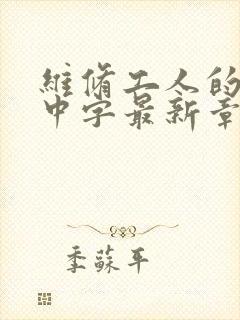 維脩工人的
中字最新章
季蘇平